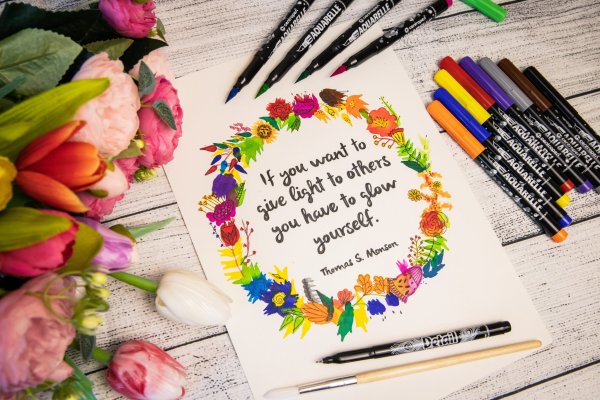 If you want to
give light to others
you have to glow
yourself.
Thomas S. Monson
AQUARELLE
AQUARELLE
AQUARELLE
AQUARELLE
AQUARELLE
AQUARELLE